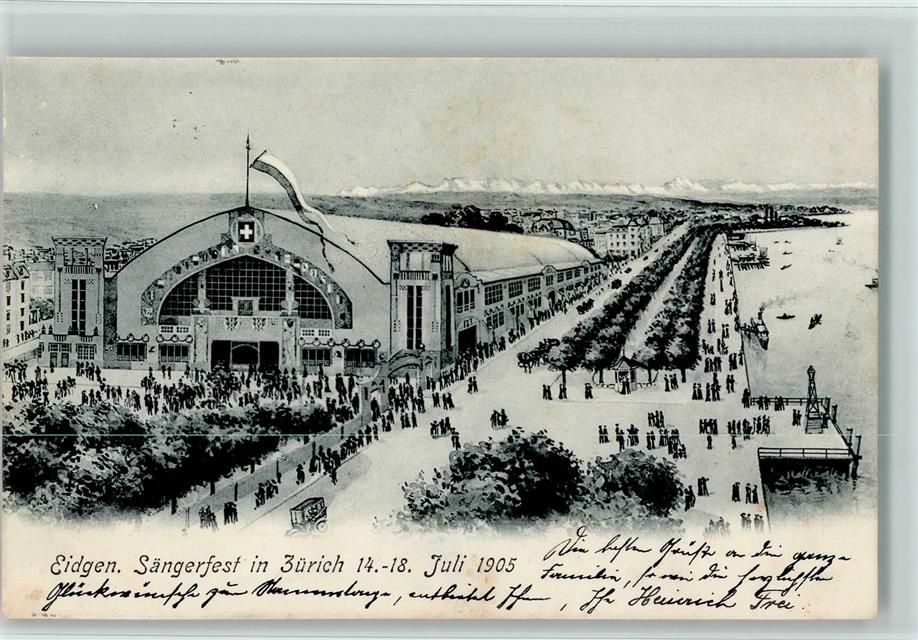 Eidgen. Sängerfest in Zürich 14.-18. Juli 1905
Die besten Grüße an die ganze
Familie, sowie die herzlichsten
Glückwünsche zum Namenstage, entbietet Ihnen, Ihr Heinrich Frei.